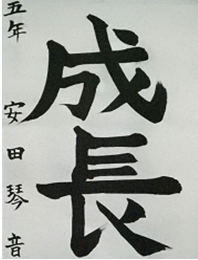 成長
五年 安田琴音